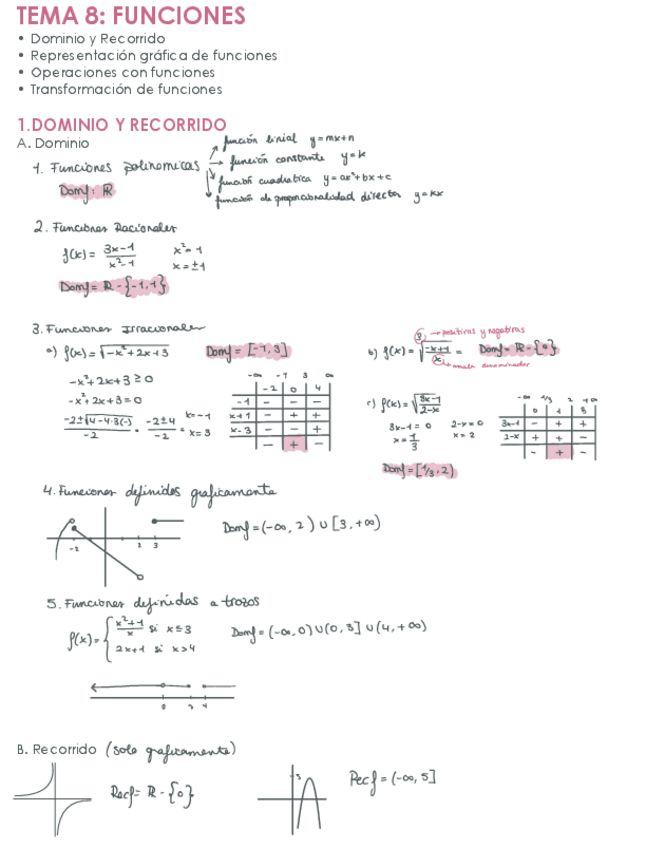 TEMA 8: FUNCIONES
• Dominio y Recorrido
• Representación gráfica de funciones
• Operaciones con funciones
• Transformación de funciones
1.DOMINIO Y RECORRIDO
A. Dominio
1. Funciones polinomicas
función linial y=mx+n
función constante y=k
función cuadratica y=ax²+bx+c
función de proporcionalidad directa y=kx
Domf: ℝ
2. Funciones Racionales
f(x) = 3x-1 / x²-1
x²=1
x=±1
Domf= ℝ - {-1,1}
3. Funciones Irracionales
a) f(x) = √-x²+2x+3 Domf = [-1,3]
-x²+2x+3 ≥ 0
-x²+2x+3 = 0
-2±√4-4·3(-) / -2 = -2±4 / -2 = x=-1
x=3
-∞ -1 3 ∞
-2 0 4
-1 - - -
x+1 - + +
x-3 - - +
- + -
b) f(x) = ∛ = Domf= ℝ-{0}
→ positivas y negativas
→ anula denominador
c) f(x) = √3x-1 / 2-x
3x-1=0
x=1/3
2-x=0
x=2
-∞ 1/3 2 +∞
0 1 3
3x-1 - + +
2-x + + -
- + -
Domf=[1/3,2)
4. Funciones definidas graficamente
-2 2 3
Domf=(-∞, 2) ∪ [3, +∞)
5. Funciones definidas a trozos
f(x) = { x²+1 / x si x≤3
2x+1 si x>4
Domf= (-∞,0)∪(0,3] ∪ (4,+∞)
0 3 4
B. Recorrido (solo graficamente)
Recf= ℝ - {0}
5
Recf = (-∞, 5]